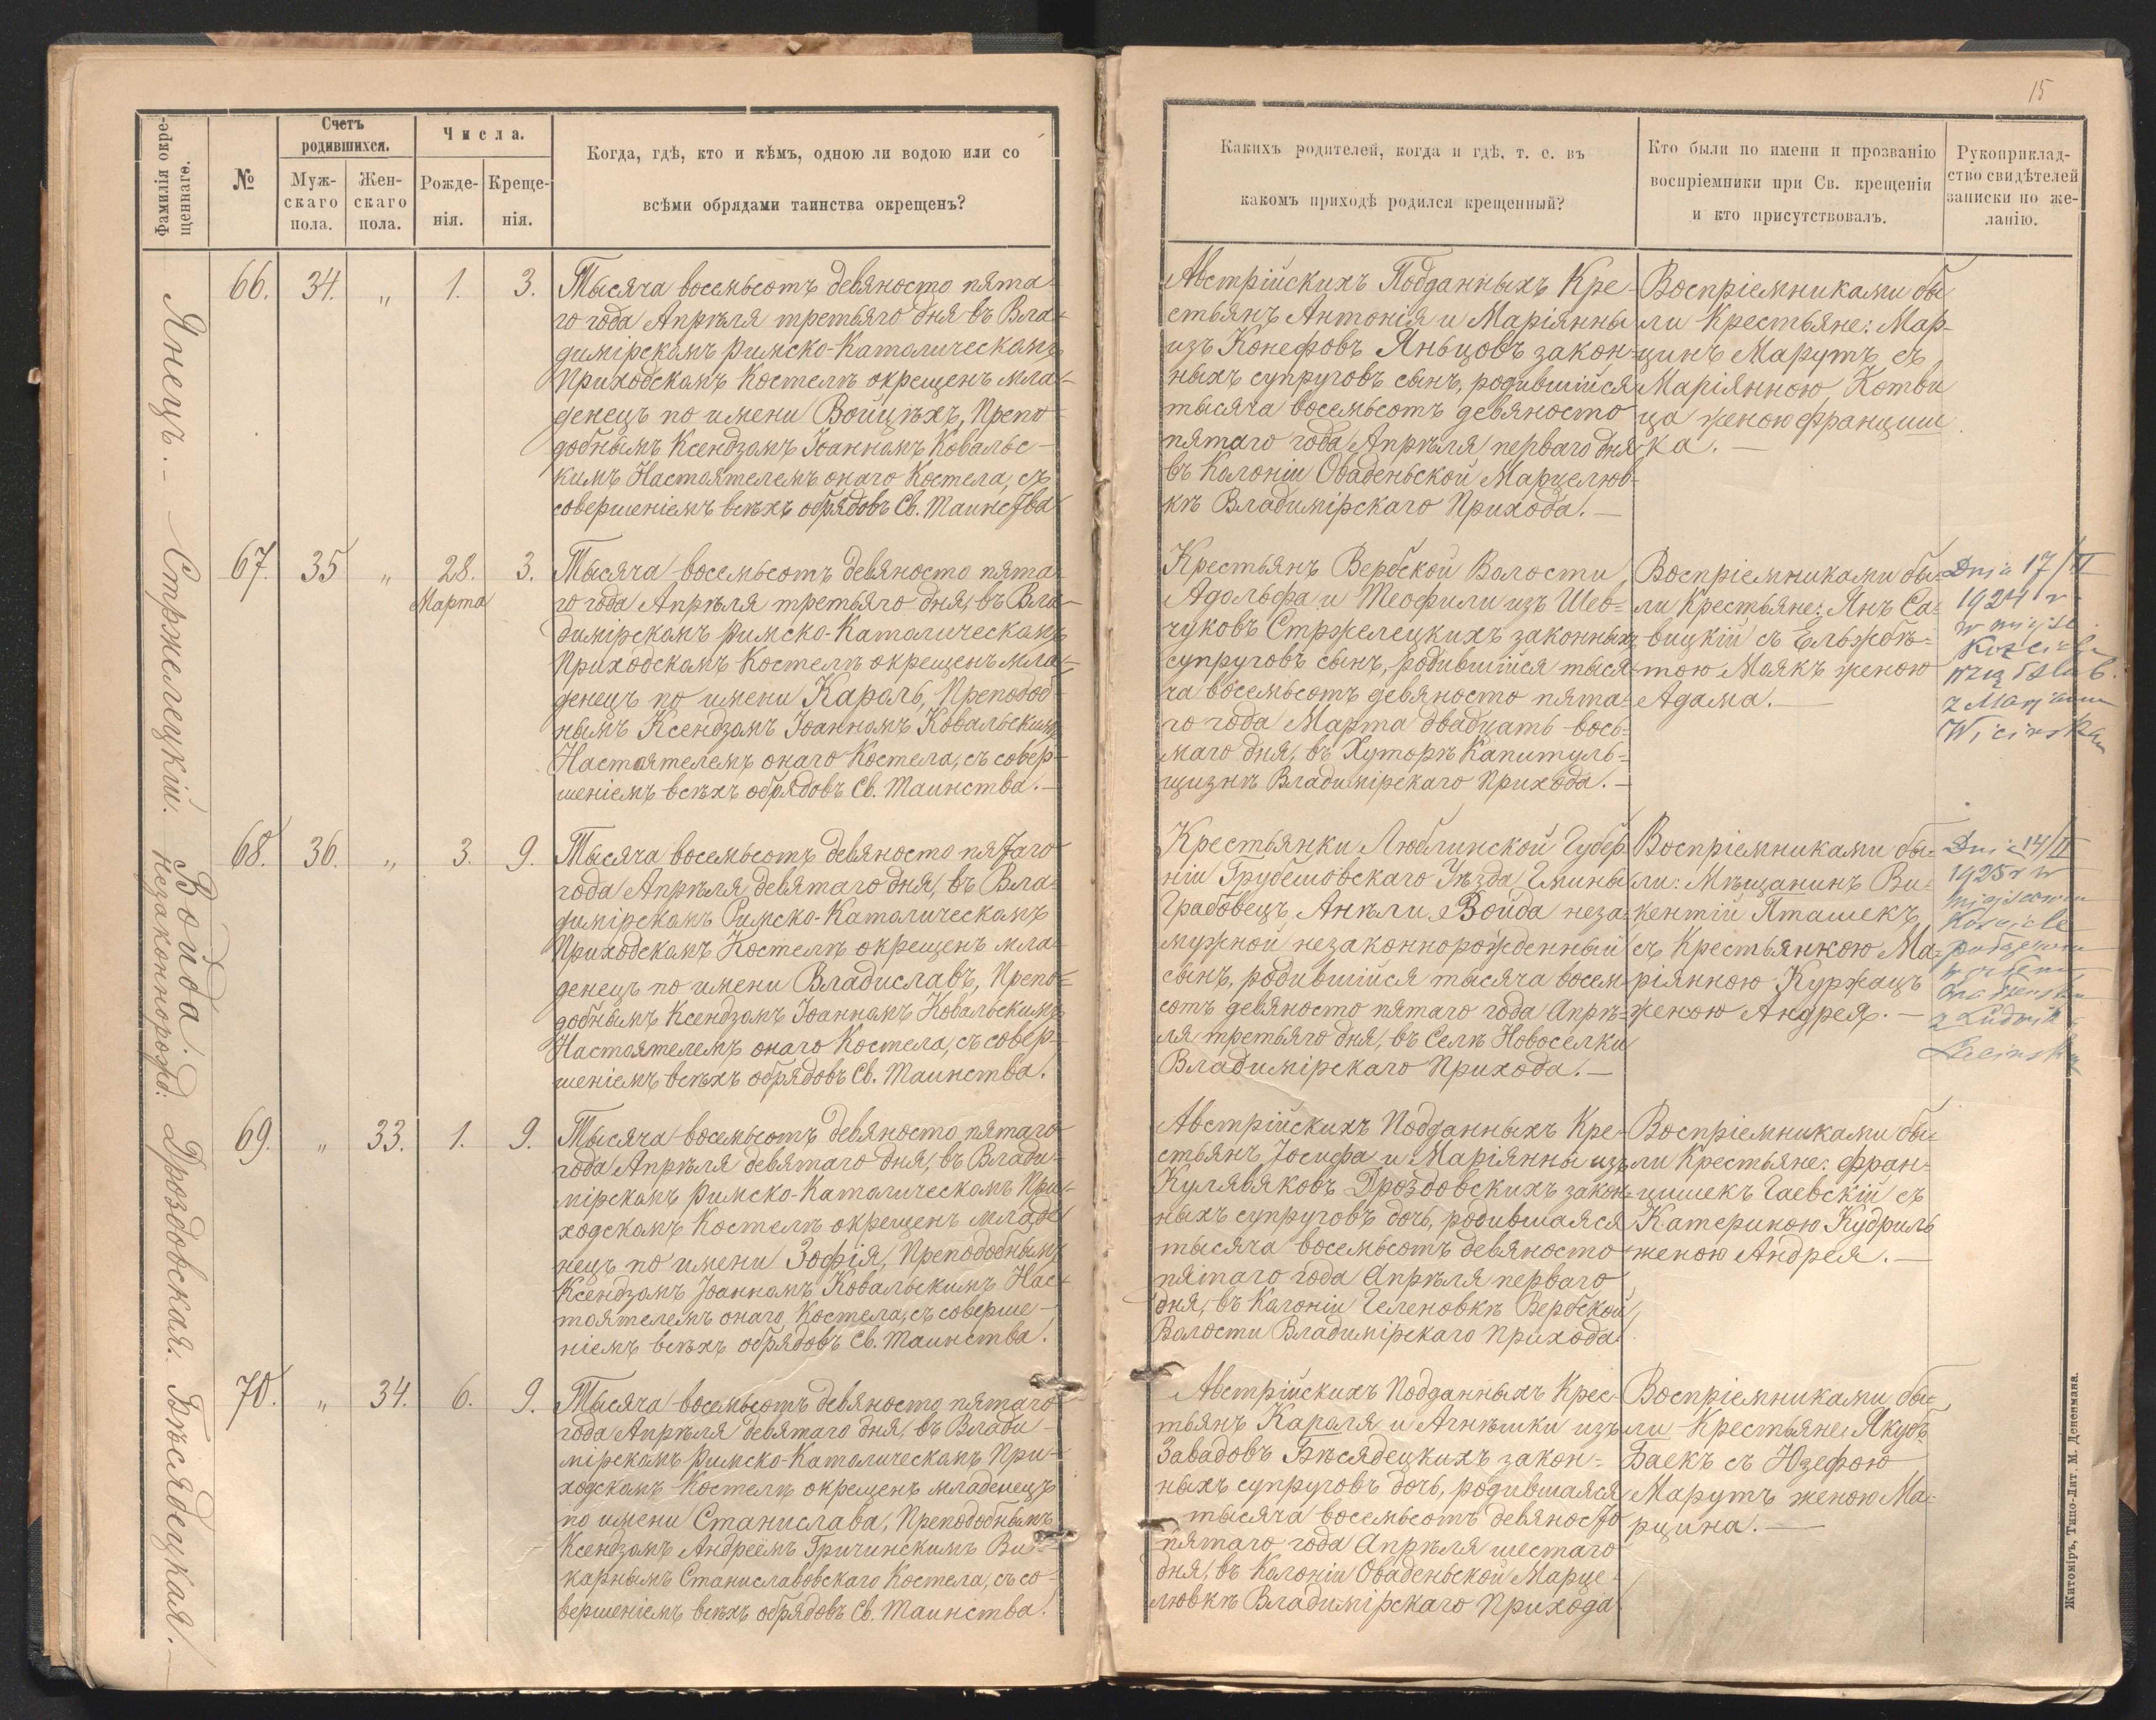 15
Фамилія окре-
щеннаго.
№
Счетъ
родившихся.
Муж-
скаго
пола.
Жен-
скаго
пола.
Числа.
Рожде-
нія.
Креще-
нія.
Когда, гдѣ, кто и кѣмъ, одною ли водою или со
всѣми обрядами таинства окрещенъ?
Какихъ родителей, когда и гдѣ, т. е. въ
какомъ приходѣ родился крещенный?
Кто были по имени и прозванію
воспріемники при Св. крещеніи
и кто присутствовалъ.
Рукоприклад-
ство свидѣтелей
записки по же-
ланію.
Янецъ.
66. 34. „ 1. 3.
Тысяча восемьсотъ девяносто пята-
го года Апрѣля третьяго дня въ Вла-
димірскомъ Римско-Католическомъ
Приходскомъ Костелѣ окрещенъ мла-
денецъ по имени Войцѣхъ, Препо-
добнымъ Ксендзомъ Іоанномъ Ковальс-
кимъ Настоятелемъ онаго Костела, съ
совершеніемъ всѣхъ обрядовъ Св. Таинства
Австрійскихъ Подданныхъ Кре-
стьянъ Антонія и Маріянны
изъ Конефовъ Яньцовъ закон-
ныхъ супруговъ сынъ, родившійся
тысяча восемьсотъ девяносто
пятаго года Апрѣля перваго дня
въ Колоніи Оваденьской Марцелюв-
кѣ Владимірскаго Прихода.
Воспріемниками бы
ли Крестьяне: Мар-
цинъ Марутъ съ
Маріянною Котви
ца женою Францишка.
Стржелецкій.
67. 35 „ 28. Марта 3.
Тысяча восемьсотъ девяносто пята-
го года Апрѣля третьяго дня, въ Вла-
димірскомъ Римско-Католическомъ
Приходскомъ Костелѣ окрещенъ мла-
денецъ по имени Кароль, Преподоб-
нымъ Ксендзомъ Іоанномъ Ковальскимъ
Настоятелемъ онаго Костела, съ совер-
шеніемъ всѣхъ обрядовъ Св. Таинства.
Крестьянъ Вербской Волости
Адольфа и Теофили изъ Шев-
чуковъ Стржелецкихъ законныхъ
супруговъ сынъ, родившійся тыся-
ча восемьсотъ девяносто пята-
го года Марта двадцать вось-
маго дня, въ Хуторѣ Капитуль-
щизнѣ Владимірскаго Прихода.
Воспріемниками бы-
ли Крестьяне: Янъ Са-
вицкій съ Ельжбѣ-
тою Маякъ женою
Адама.
Dnia 17/II
1924 r
Kościele
wziął ślub
z Marjanną
Wicińską
Войда.
незаконнорожд:
68. 36. „ 3. 9.
Тысяча восемьсотъ девяносто пятаго
года Апрѣля девятаго дня, въ Вла-
димірскомъ Римско-Католическомъ
Приходскомъ Костелѣ окрещенъ мла-
денецъ по имени Владиславъ, Препо-
добнымъ Ксендзомъ Іоанномъ Ковальскимъ
Настоятелемъ онаго Костела, съ совер-
шеніемъ всѣхъ обрядовъ Св. Таинства.
Крестьянки Люблинской Губер-
ніи Грубешовскаго Уѣзда Гмины
Грабовецъ, Анѣли Войда неза-
мужной незаконнорожденный
сынъ, родившійся тысяча восем-
сотъ девяносто пятаго года Апрѣ-
ля третьяго дня, въ Селѣ Новоселки
Владимірскаго Прихода.
Воспріемниками бы-
ли: Мѣщанинъ Ви-
кентій Пташекъ
съ Крестьянкою Ма-
ріянною Куржацъ
женою Андрея.
Dnia 14/II
1925 r w
miejscowym
Kościele
z Ludwiką
Дроздовская.
69. „ 33. 1. 9.
Тысяча восемьсотъ девяносто пятаго
года Апрѣля девятаго дня, въ Влади-
мірскомъ Римско-Католическомъ При-
ходскомъ Костелѣ окрещенъ младе-
нецъ по имени Зофія, Преподобнымъ
Ксендзомъ Іоанномъ Ковальскимъ Нас-
тоятелемъ онаго Костела, съ соверше-
ніемъ всѣхъ обрядовъ Св. Таинства.
Австрійскихъ Подданныхъ Кре-
стьянъ Іосифа и Маріянны изъ
Кулявяковъ Дроздовскихъ закон-
ныхъ супруговъ дочь, родившаяся
тысяча восемьсотъ девяносто
пятаго года Апрѣля перваго
дня, въ Колоніи Геленовкѣ Вербской
Волости Владимірскаго Прихода.
Воспріемниками бы-
ли Крестьяне: Фран-
цишекъ Гаевскій съ
Катериною Кудриль
женою Андрея.
Бѣсядецкая.
70. „ 34. 6. 9.
Тысяча восемьсотъ девяносто пятаго
года Апрѣля девятаго дня, въ Влади-
мірскомъ Римско-Католическомъ При-
ходскомъ Костелѣ окрещенъ младенецъ
по имени Станислава, Преподобнымъ
Ксендзомъ Андреемъ Гричинскимъ Ви-
карнымъ Станиславовскаго Костела, съ со-
вершеніемъ всѣхъ обрядовъ Св. Таинства.
Австрійскихъ Подданныхъ Крес-
тьянъ Кароля и Агнѣшки изъ
Завадовъ Бѣсядецкихъ закон-
ныхъ супруговъ дочь, родившаяся
тысяча восемьсотъ девяносто
пятаго года Апрѣля шестаго
дня, въ Колоніи Оваденьской Марце-
лювкѣ Владимірскаго Прихода
Воспріемниками бы-
ли Крестьяне: Якубъ
Баекъ съ Юзефою
Марутъ женою Ма-
рцина.
Житоміръ, Типо-Лит. М. Дененмана.